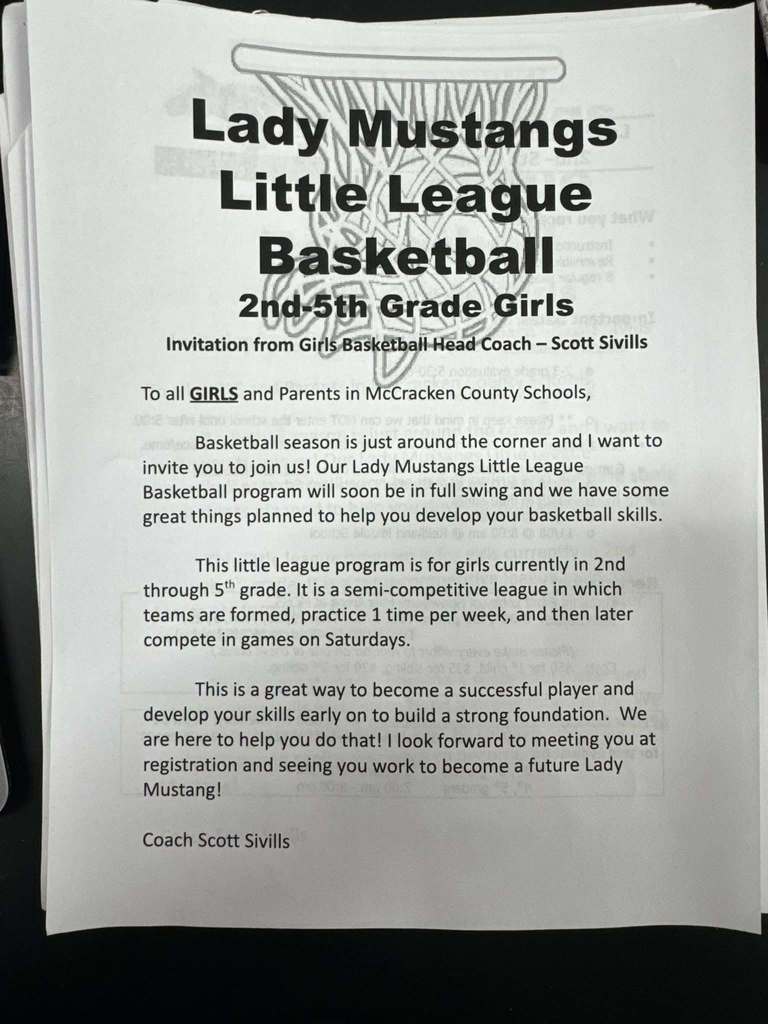 Lady Mustangs
Little League
Basketball
2nd-5th Grade Girls
Invitation from Girls Basketball Head Coach – Scott Sivills
To all GIRLS and Parents in McCracken County Schools,
Basketball season is just around the corner and I want to
invite you to join us! Our Lady Mustangs Little League
Basketball program will soon be in full swing and we have some
great things planned to help you develop your basketball skills.
This little league program is for girls currently in 2nd
through 5th grade. It is a semi-competitive league in which
teams are formed, practice 1 time per week, and then later
compete in games on Saturdays.
This is a great way to become a successful player and
develop your skills early on to build a strong foundation.  We
are here to help you do that! I look forward to meeting you at
registration and seeing you work to become a future Lady
Mustang!
Coach Scott Sivills